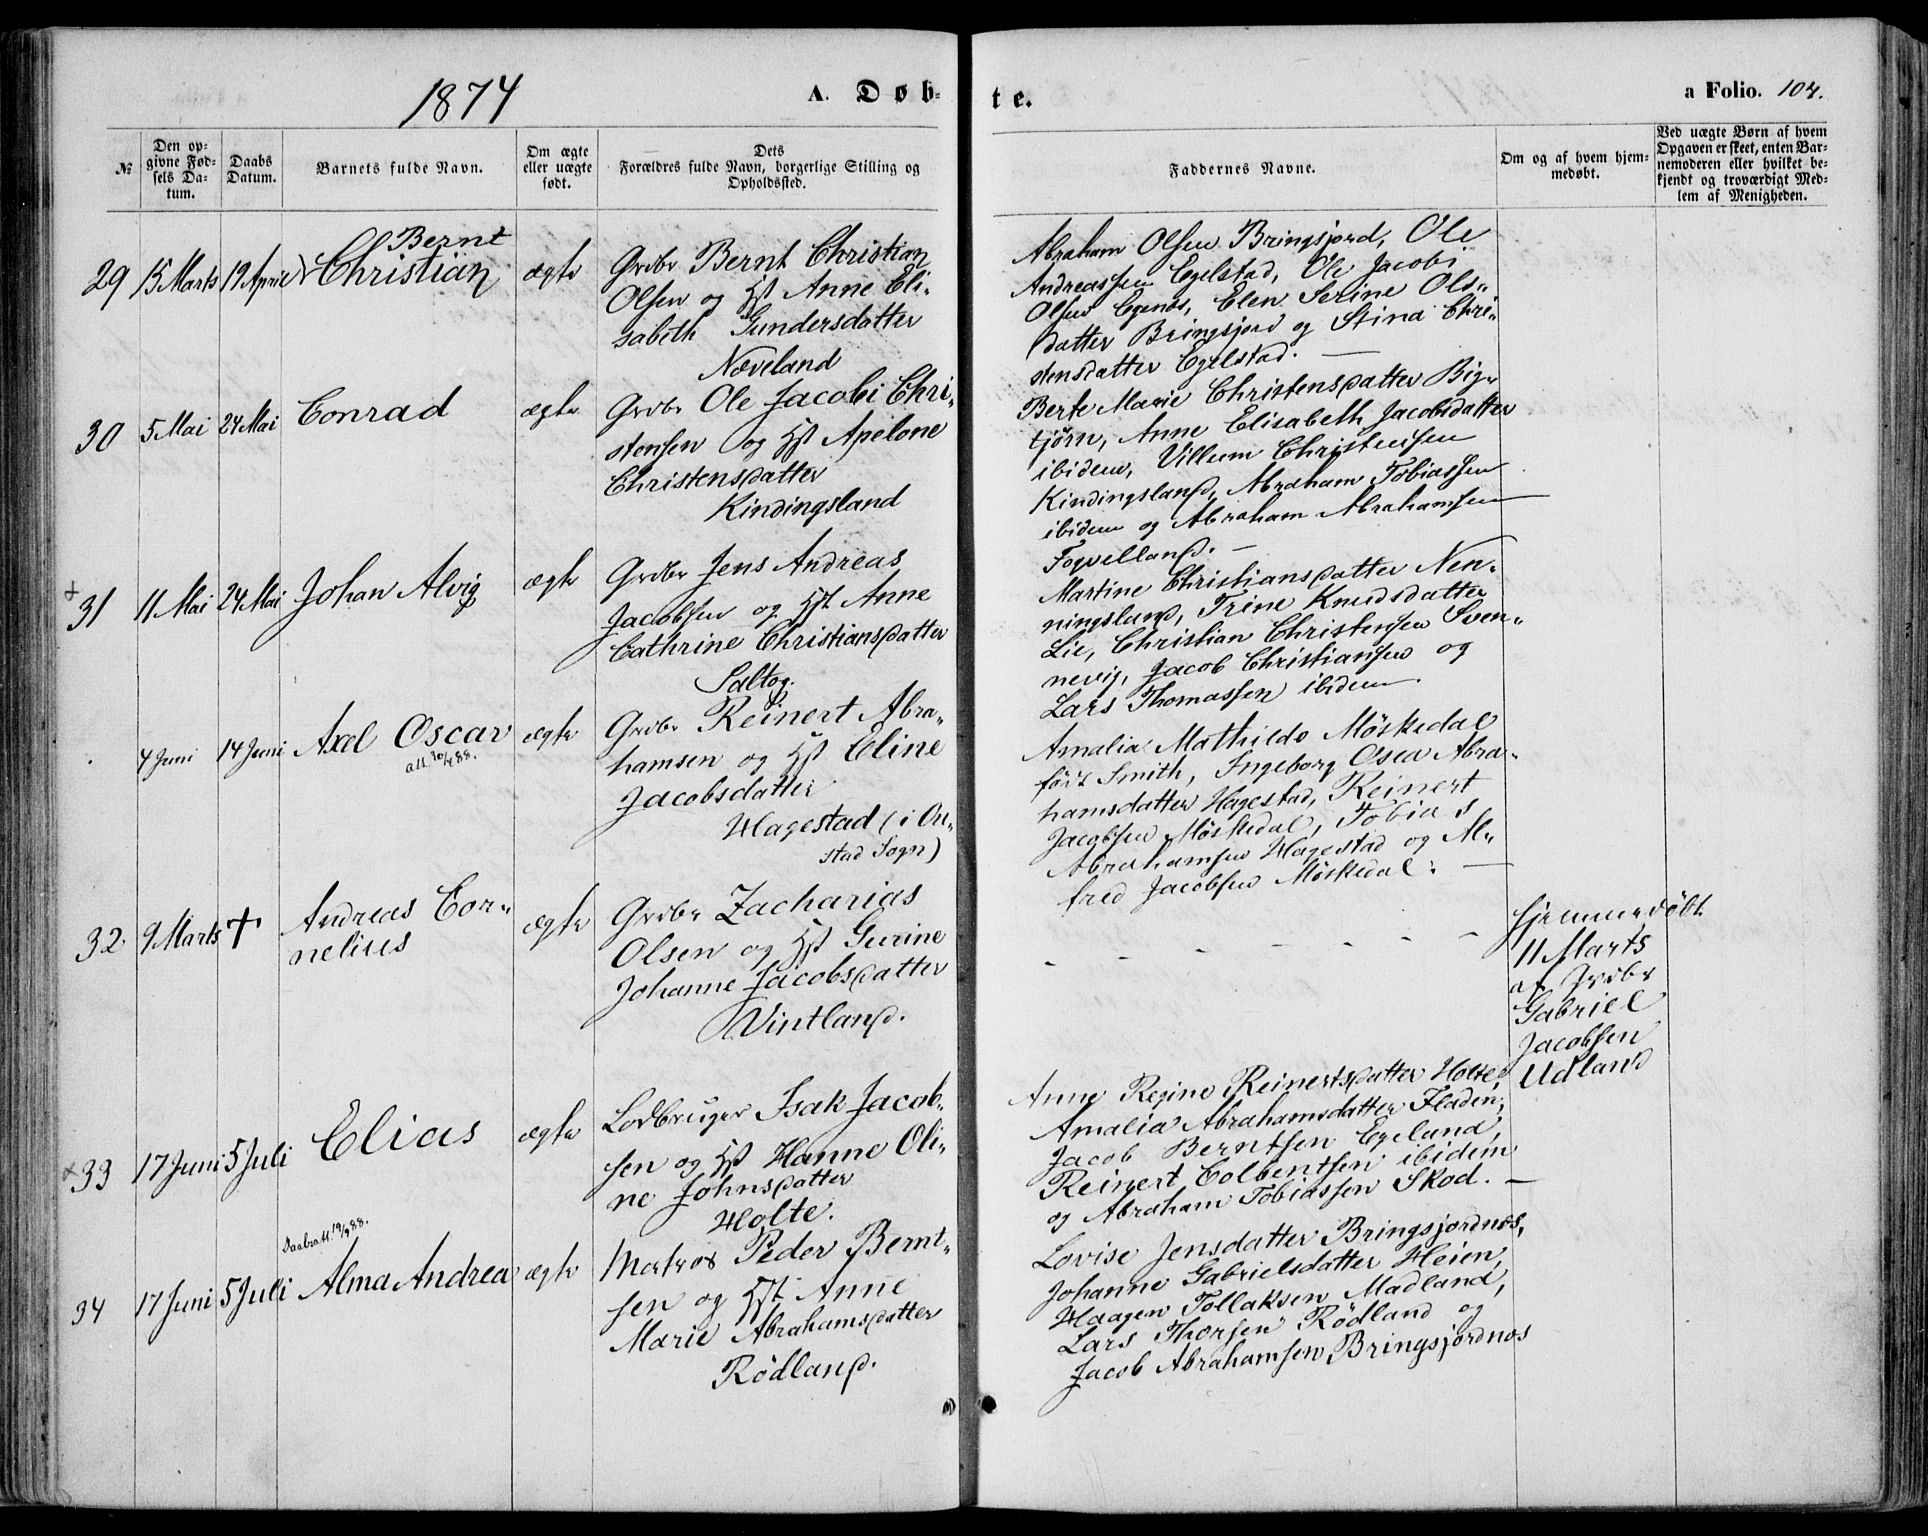 1874
A. Døb-
te.
a Folio. 104.
№
Den op-
givne Fød-
sels Da-
tum.
Daabs
Datum.
Barnets fulde Navn.
Om ægte
eller uægte
født.
Dets
Forældres fulde Navn, borgerlige Stilling og
Opholdssted.
Faddernes Navne.
Om og af hvem hjem-
medøbt.
Ved uægte Børn af hvem
Opgaven er skeet, enten Bar-
nemoderen eller hvilket be-
kjendt og troværdigt Med-
lem af Menigheden.
29 15 Marts 19 April
Bernt
Christian
ægte
Grdbr Bernt Christian
Olsen og Hst Anne Eli-
sabeth Gundersdatter
Næveland
Abraham Olsen Bringsjord, Ole
Andreassen Egelstad, Ole Jacobi
Olsen Egenes, Elen Serine Ols-
datter Bringsjord og Stina Chri-
stensdatter Egelstad. —
30 5 Mai 24 Mai
Conrad
ægte
Grdbr Ole Jacobi Chri-
stensen og Hst Apelone
Christensdatter
Kindingsland
Berte Marie Christensdatter Big-
tjørn, Anne Elisabeth Jacobsdatter
ibidem, Villum Christensen
Kindingsland, Abraham Tobiassen
ibidem og Abraham Abrahamsen
Foqvelland. —
+
31 11 Mai 24 Mai
Johan Alvig
ægte
Grdbr Jens Andreas
Jacobsen og Hst Anne
Cathrine Christiansdatter
Saltog.
Martine Christiansdatter Nen-
ningsland, Trine Knudsdatter
Lie, Christian Christensen Sven-
nevig, Jacob Christiansen og
Lars Thomassen ibidem.
4 Juni 14 Juni
Axel Oscar
ægte
Grdbr Reinert Abra-
hamsen og Hst Eline
Jacobsdatter
Hagestad (i On-
stad Sogn)
Amalia Mathilde Møskedal
født Smith, Ingeborg Osea Abra-
hamsdatter Hagestad, Reinert
Jacobsen Møskedal, Tobias
Abrahamsen Hagestad og Al-
fred Jacobsen Møskedal. —
32. 9 Marts +
Andreas Cor-
nelius
ægte
Grdbr Zacharias
Olsen og Hst Gurine
Johanne Jacobsdatter
Vintland.
- - - - - - -
Hjemmedøbt
11 Marts
af Grdbr
Gabriel
Jacobsen
Udland
+
33 17 Juni 5 Juli
Elias
ægte
Lodbruger Isak Jacob-
sen og Hst Hanne Oli-
ne Johnsdatter
Holte.
Anne Regine Reinertsdatter Holte,
Amalia Abrahamsdatter Fladen,
Jacob Berntsen Egeland,
Reinert Colbentsen ibidem
og Abraham Tobiassen Skod. —
Daabsatt. 19/9 88.
34 17 Juni 5 Juli
Alma Andrea
ægte
Matros Peder Bernt-
sen og Hst Anne
Marie Abrahamsdatter
Rødland.
Lovise Jensdatter Bringsjordnes,
Johanne Gabrielsdatter Heien,
Haagen Tollaksen Madland,
Lars Thorsen Rødland og
Jacob Abrahamsen Bringsjordnes